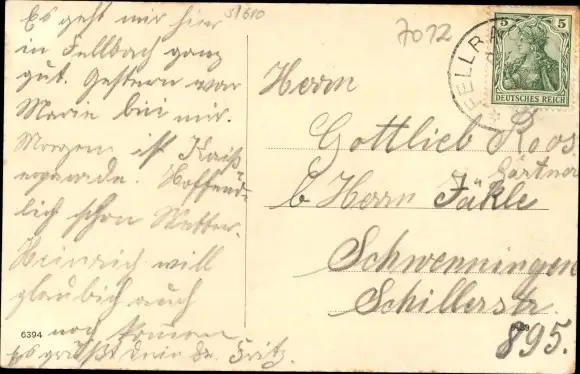 Es geht mir hier
in Fellbach ganz
gut. Gestern war
Marie bei mir.
Morgen ist Kaiß
erparade. Hoffend
lich schön Wetter.
Heinrich will
glaub ich auch
noch kommen
Es grüßt dein Br. Fritz.
51610
7012
FELLBA
5 5
DEUTSCHES REICH
Herrn
Gottlieb Roos
Gärtner
b Herrn Jäkle
Schwenningen
Schillerstr.
895.
6394